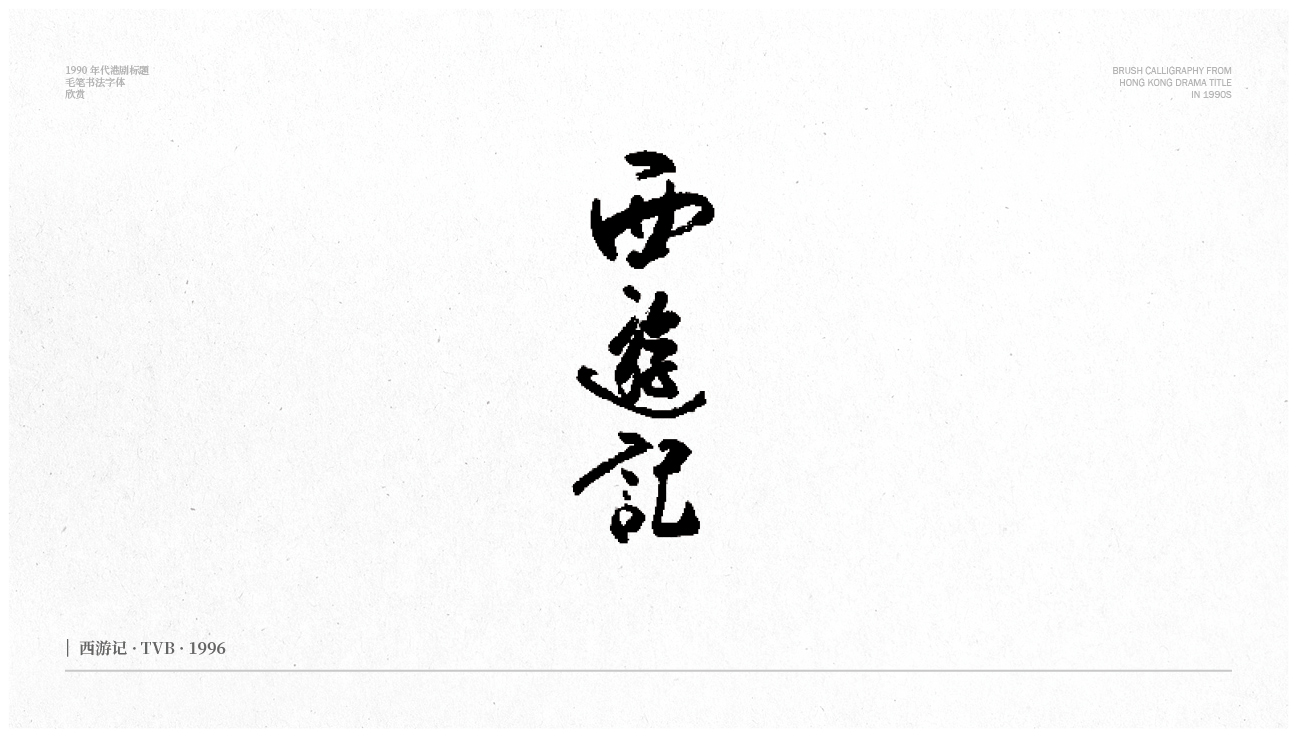 1990 年代港剧标题
毛笔书法字体
欣赏
BRUSH CALLIGRAPHY FROM
HONG KONG DRAMA TITLE
IN 1990S
西
遊
記
西游记 · TVB · 1996